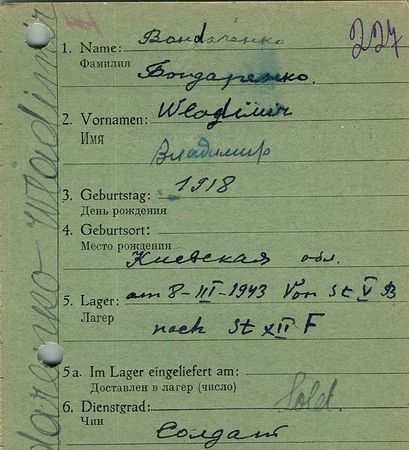 227
1. Name: Bondarenko
Фамилия
Бондаренко.
2. Vornamen: Wladimir
Имя
Владимир
3. Geburtstag: 1918
День рождения
4. Geburtsort:
Место рождения
Киевская обл.
5. Lager: am 8-III-1943 Von St V B
Лагер
nach St XII F
5a. Im Lager eingeliefert am:
Доставлен в лагер (число)
6. Dienstgrad: Sold.
Чин
Солдат
darenko Wladimir